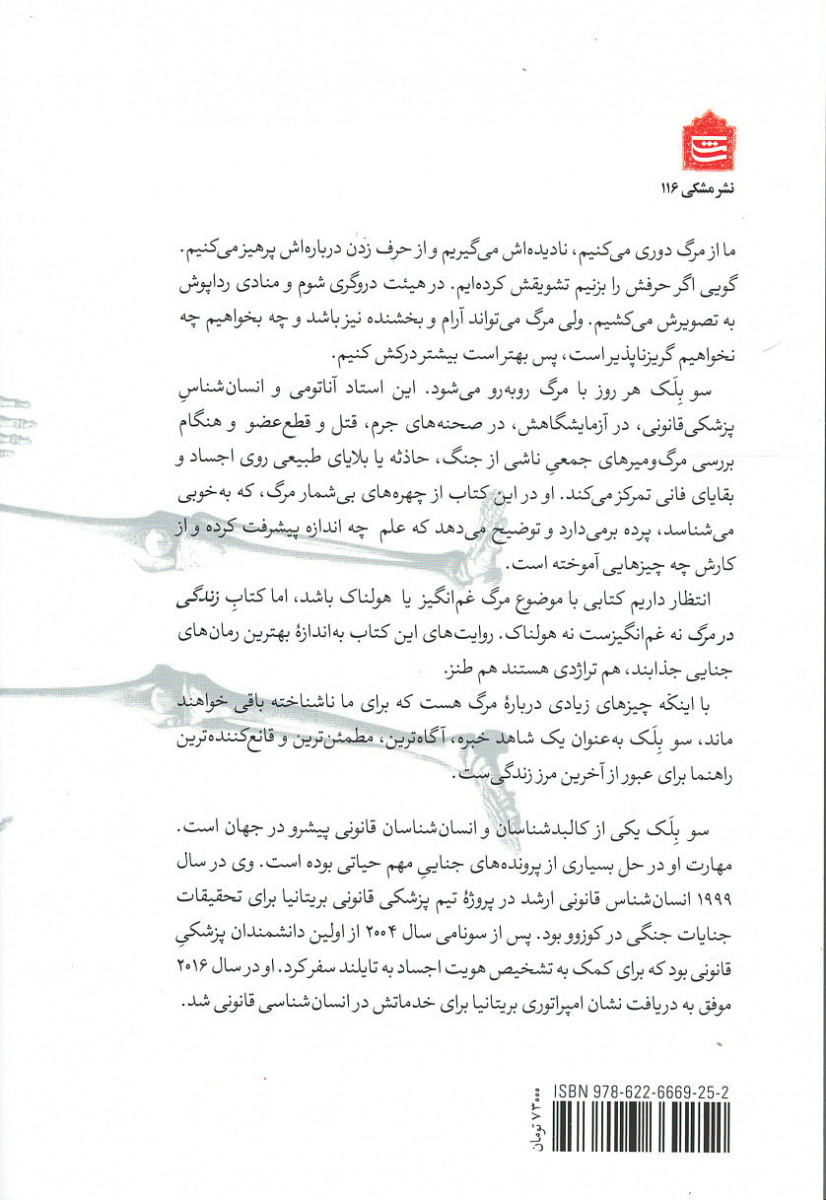 نشر مشکی ۱۱۶
ما از مرگ دوری می‌کنیم، نادیده‌اش می‌گیریم و از حرف زدن درباره‌اش پرهیز می‌کنیم.
گویی اگر حرفش را بزنیم تشویقش کرده‌ایم. در هیئت دروگری شوم و منادی رداپوش
به تصویرش می‌کشیم. ولی مرگ می‌تواند آرام و بخشنده نیز باشد و چه بخواهیم چه
نخواهیم گریزناپذیر است، پس بهتر است بیشتر درکش کنیم.
سو بِلَک هر روز با مرگ روبه‌رو می‌شود. این استاد آناتومی و انسان‌شناسِ
پزشکی‌قانونی، در آزمایشگاهش، در صحنه‌های جرم، قتل و قطع‌عضو و هنگام
بررسی مرگ‌ومیرهای جمعیِ ناشی از جنگ، حادثه یا بلایای طبیعی روی اجساد و
بقایای فانی تمرکز می‌کند. او در این کتاب از چهره‌های بی‌شمار مرگ، که به‌خوبی
می‌شناسد، پرده برمی‌دارد و توضیح می‌دهد که علم چه اندازه پیشرفت کرده و از
کارش چه چیزهایی آموخته است.
انتظار داریم کتابی با موضوع مرگ غم‌انگیز یا هولناک باشد، اما کتابِ زندگی
در مرگ نه غم‌انگیزست نه هولناک. روایت‌های این کتاب به‌اندازهٔ بهترین رمان‌های
جنایی جذابند، هم تراژدی هستند هم طنز.
با اینکه چیزهای زیادی دربارهٔ مرگ هست که برای ما ناشناخته باقی خواهند
ماند، سو بِلَک به‌عنوان یک شاهد خبره، آگاه‌ترین، مطمئن‌ترین و قانع‌کننده‌ترین
راهنما برای عبور از آخرین مرز زندگی‌ست.
سو بِلَک یکی از کالبدشناسان و انسان‌شناسان قانونی پیشرو در جهان است.
مهارت او در حل بسیاری از پرونده‌های جناییِ مهم حیاتی بوده است. وی در سال
۱۹۹۹ انسان‌شناس قانونی ارشد در پروژهٔ تیم پزشکی قانونی بریتانیا برای تحقیقات
جنایات جنگی در کوزوو بود. پس از سونامی سال ۲۰۰۴ از اولین دانشمندان پزشکیِ
قانونی بود که برای کمک به تشخیص هویت اجساد به تایلند سفر کرد. او در سال ۲۰۱۶
موفق به دریافت نشان امپراتوری بریتانیا برای خدماتش در انسان‌شناسی قانونی شد.
ISBN 978-622-6669-25-2
۷۳۰۰۰ تومان